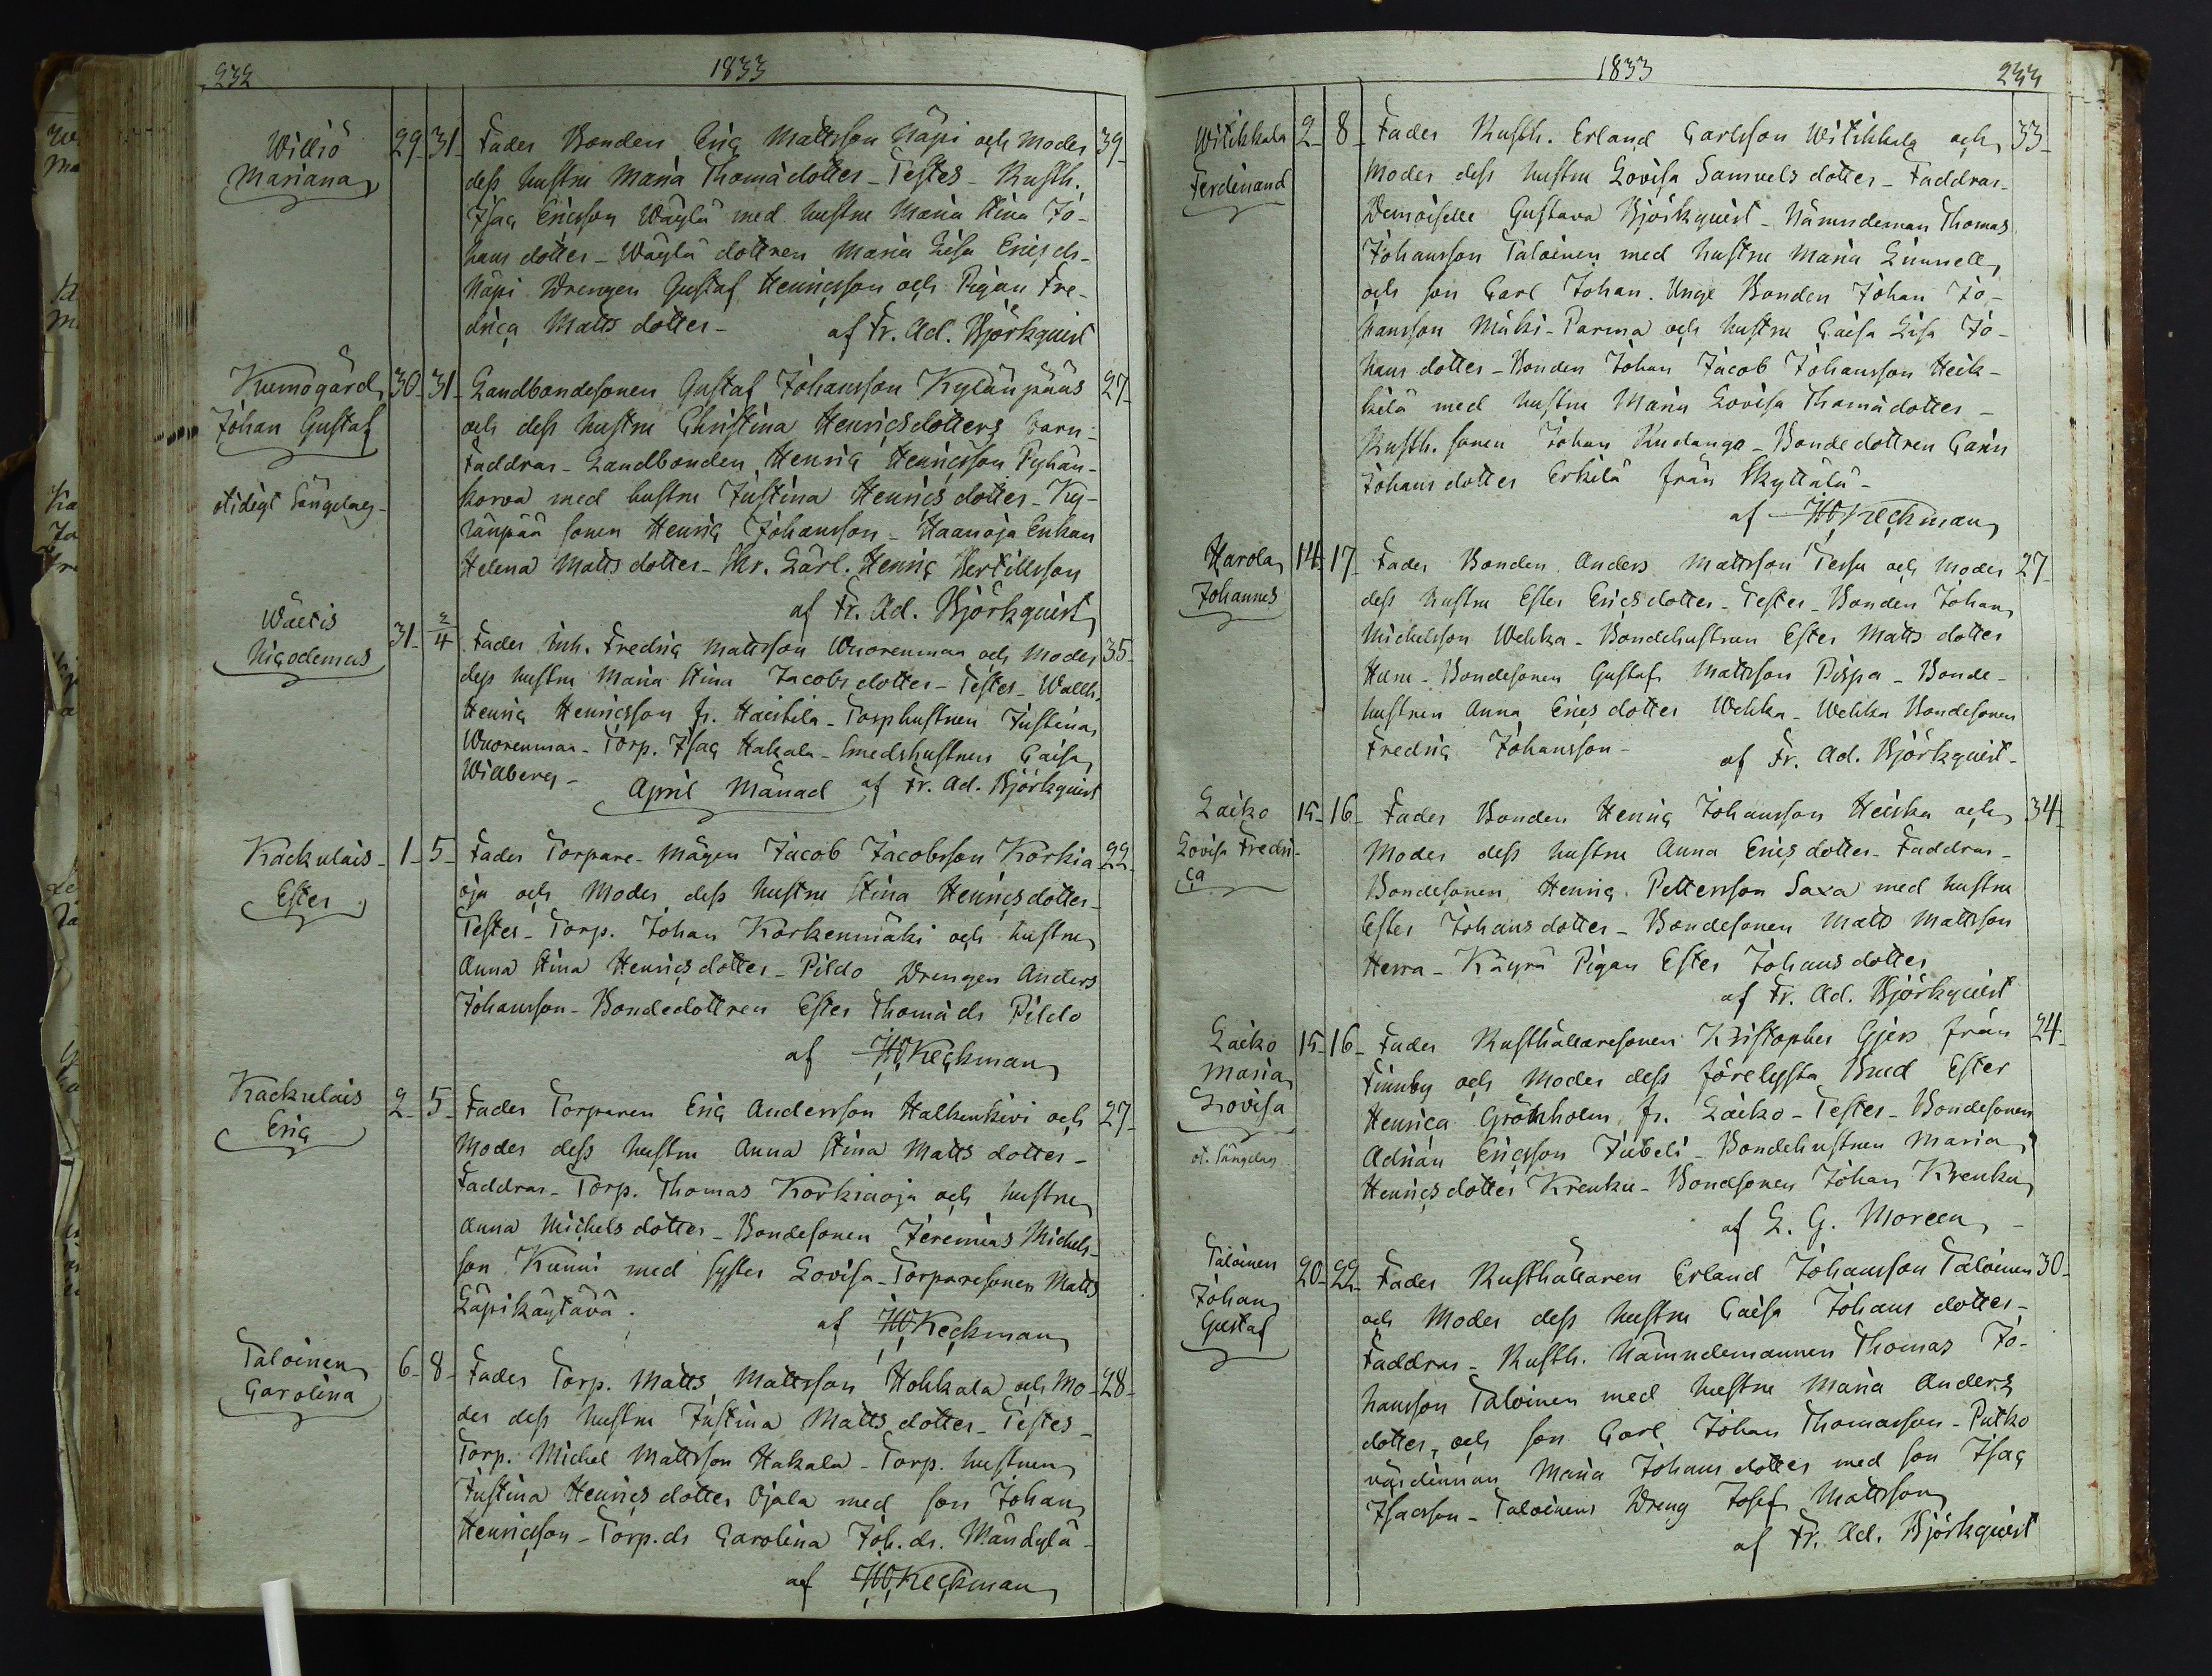 232
1833
Williö
Mariana
29 31 Fader Bonden Eric Mattsson Näpi och Moder 39
dess hustru Maria Thomädotter - Testes - Rusth.
Isac Ericsson Wäylä med hustru Maria Stina Jo-
hans dotter - Wäylä dottren Maria Lisa Erics dr -
Näpi Drengen Gustaf Henricsson och Pigan Fre-
drica Matts dotter -
af Fr. Ad. Björkquist
Kumogård
Johan Gustaf
otidigt Sängelag -
30 31 Landbondesonen Gustaf Johansson Kylänpääs 27
och dess hustru Christina Henricsdotters barn -
Faddrar - Landbonden Henric Henricsson Pyhän-
korva med hustru Justina Henrics dotter - Ky-
länpää sonen Henric Johansson - Haanoja Enkan
Helena Matts dotter - Skr. Lärl. Henric Bertillsson
af Fr. Ad. Björkquist
Wäetis
Nicodemus
31 2/4 Fader Inh. Fredric Mattsson Wuorenmaa och Moder 35
dess hustru Maria Stina Jacobs dotter - Testes - Wallh.
Henric Henricsson fr. Haistila - Torphustrun Justina
Wuorenmaa - Torp. Isac Hakala - Smedshustrun Caisa
Widberg -
April Månad
af Fr. Ad. Björkquist
Kackulais
Ester
1 5 Fader Torpare-Mågen Jacob Jacobsson Korkia 22
oja och Moder dess hustru Stina Henricsdotter -
Testes - Torp. Johan Korkenmäki och hustru
Anna Stina Henricsdotter - Pildo Drengen Anders
Johansson - Bondedottren Ester Thomä dr Pildo
af Keckman
Kackulais
Eric
2 5 Fader Torparen Eric Andersson Halkenkivi och 27
Moder dess hustru Anna Stina Matts dotter -
Faddrar - Torp. Thomas Korkiaoja och hustru
Anna Michels dotter - Bondesonen Jeremias Michels-
son Kunni med syster Lovisa - Torparesonen Matts
Läpikäytävä.
af Keckman
Taloinen
Carolina
6 8 Fader Torp. Matts Mattsson Hohkala och Mo- 28
der dess hustru Justina Matts dotter - Testes -
Torp. Michel Mattsson Hakala - Torp. hustrun
Justina Henrics dotter Ojala med son Johan
Henricsson - Torp. dr Carolina Joh. dr. Mändylä -
af Keckman
1833
233
Witikkala
Ferdinand
2 8 Fader Rusth. Erland Carlsson Witikkala och 33
Moder dess hustru Lovisa Samuels dotter - Faddrar -
Demoiselle Gustava Björkquist - Nämndeman Thomas
Johansson Taloinen med hustru Maria Linnell
och son Carl Johan. Unge Bonden Johan Jo-
hansson Mäki-Parma och hustru Caisa Lisa Jo-
hans dotter - Bonden Johan Jacob Johansson Heik-
kilä med hustru Maria Lovisa Thomädotter -
Rusth. sonen Johan Kudanga - Bondedottren Carin
Johans dotter Erkilä från Skyttälä -
af Keckman
Harola
Johannes
14 17 Fader Bonden Anders Mattsson Tessu och Moder 27
dess hustru Ester Ericsdotter - Testes - Bonden Johan
Michelsson Wehka - Bondehustrun Ester Matts dotter
Hum - Bondesonen Gustaf Mattsson Pispa - Bonde-
hustrun Anna Erics dotter Wehka - Wehka Bondesonen
Fredric Johansson -
af Fr. Ad. Björkquist -
Laiko
Lovisa Fredri-
ca
15 16 Fader Bonden Henric Johansson Heiska och 34
Moder dess hustru Anna Erics dotter - Faddrar -
Bondesonen Henric Pettersson Saxa med hustru
Ester Johans dotter - Bondesonen Matts Mattsson
Herra - Käyrä Pigan Ester Johans dotter
af Fr. Ad. Björkquist
Laiko
Maria
Lovisa
ot. Sängelag
15 16 Fader Rusthållaresonen Kristopher Gjers från 24
Finnby och Moder dess förelysta Brud Ester
Henrica Grönholm fr. Laiko - Testes - Bondesonen
Adrian Ericsson Jubeli - Bondehustrun Maria
Henrics dotter Krenku - Bondsonen Johan Krenku
af L. G. Moreen -
Taloinen
Johan
Gustaf
20 22 Fader Rusthållaren Erland Johansson Taloinen 30
och Moder dess hustru Caisa Johans dotter -
Faddrar - Rusth. Nämndemannen Thomas Jo-
hansson Taloinen med hustru Maria Anders
dotter, och son Carl Johan Thomasson - Putko
värdinnan Maria Johans dotter med son Isac
Isacsson - Taloinens Dreng Josef Mattsson
af Fr. Ad. Björkquist